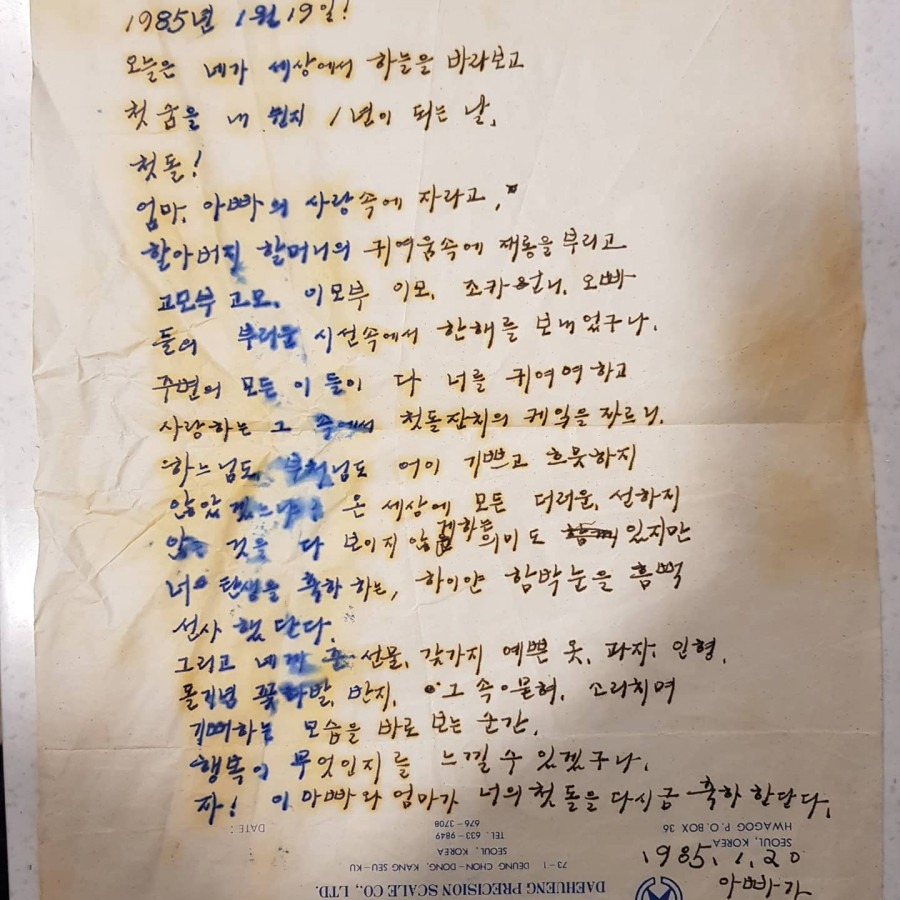 1985년 1월 19일!
오늘은 네가 세상에서 하늘을 바라보고
첫 숨을 내 쉰지 1년이 되는 날,
첫돌!
엄마, 아빠의 사랑속에 자라고,
할아버지 할머니의 귀여움속에 재롱을 부리고
고모부 고모, 이모부 이모, 조카 언니, 오빠
들의 부러운 시선속에서 한해를 보내었구나.
주변의 모든 이 들이 다 너를 귀여여하고
사랑하는 그 속에서 첫돌잔치의 케익을 자르니,
하느님도, 부처님도 어이 기쁘고 흐뭇하지
않았겠느냐 온 세상에 모든 더러운, 선하지
않은 것을 다 보이지 않게하는 의미도 있지만
너의 탄생을 축하 하는, 하이얀 함박눈을 흠뻑
선사 했단다.
그리고 네가 준 선물, 갖가지 예쁜 옷, 과자, 인형,
돌기념 꽃다발, 반지, 그 속에 묻혀, 소리치며
기뻐하는 모습을 바로 보는 순간,
행복이 무엇인지를 느낄 수 있겠구나.
자! 이 아빠와 엄마가 너의 첫돌을 다시금 축하 한단다.
1985. 1. 20
아빠가
DAEHUENG PRECISION SCALE CO., LTD.
73-1 DEUNG CHON-DONG, KANG SEU-KU
SEOUL, KOREA
TEL. 633-9849
676-3708
HWAGOG P.O. BOX 36
SEOUL, KOREA
DATE: